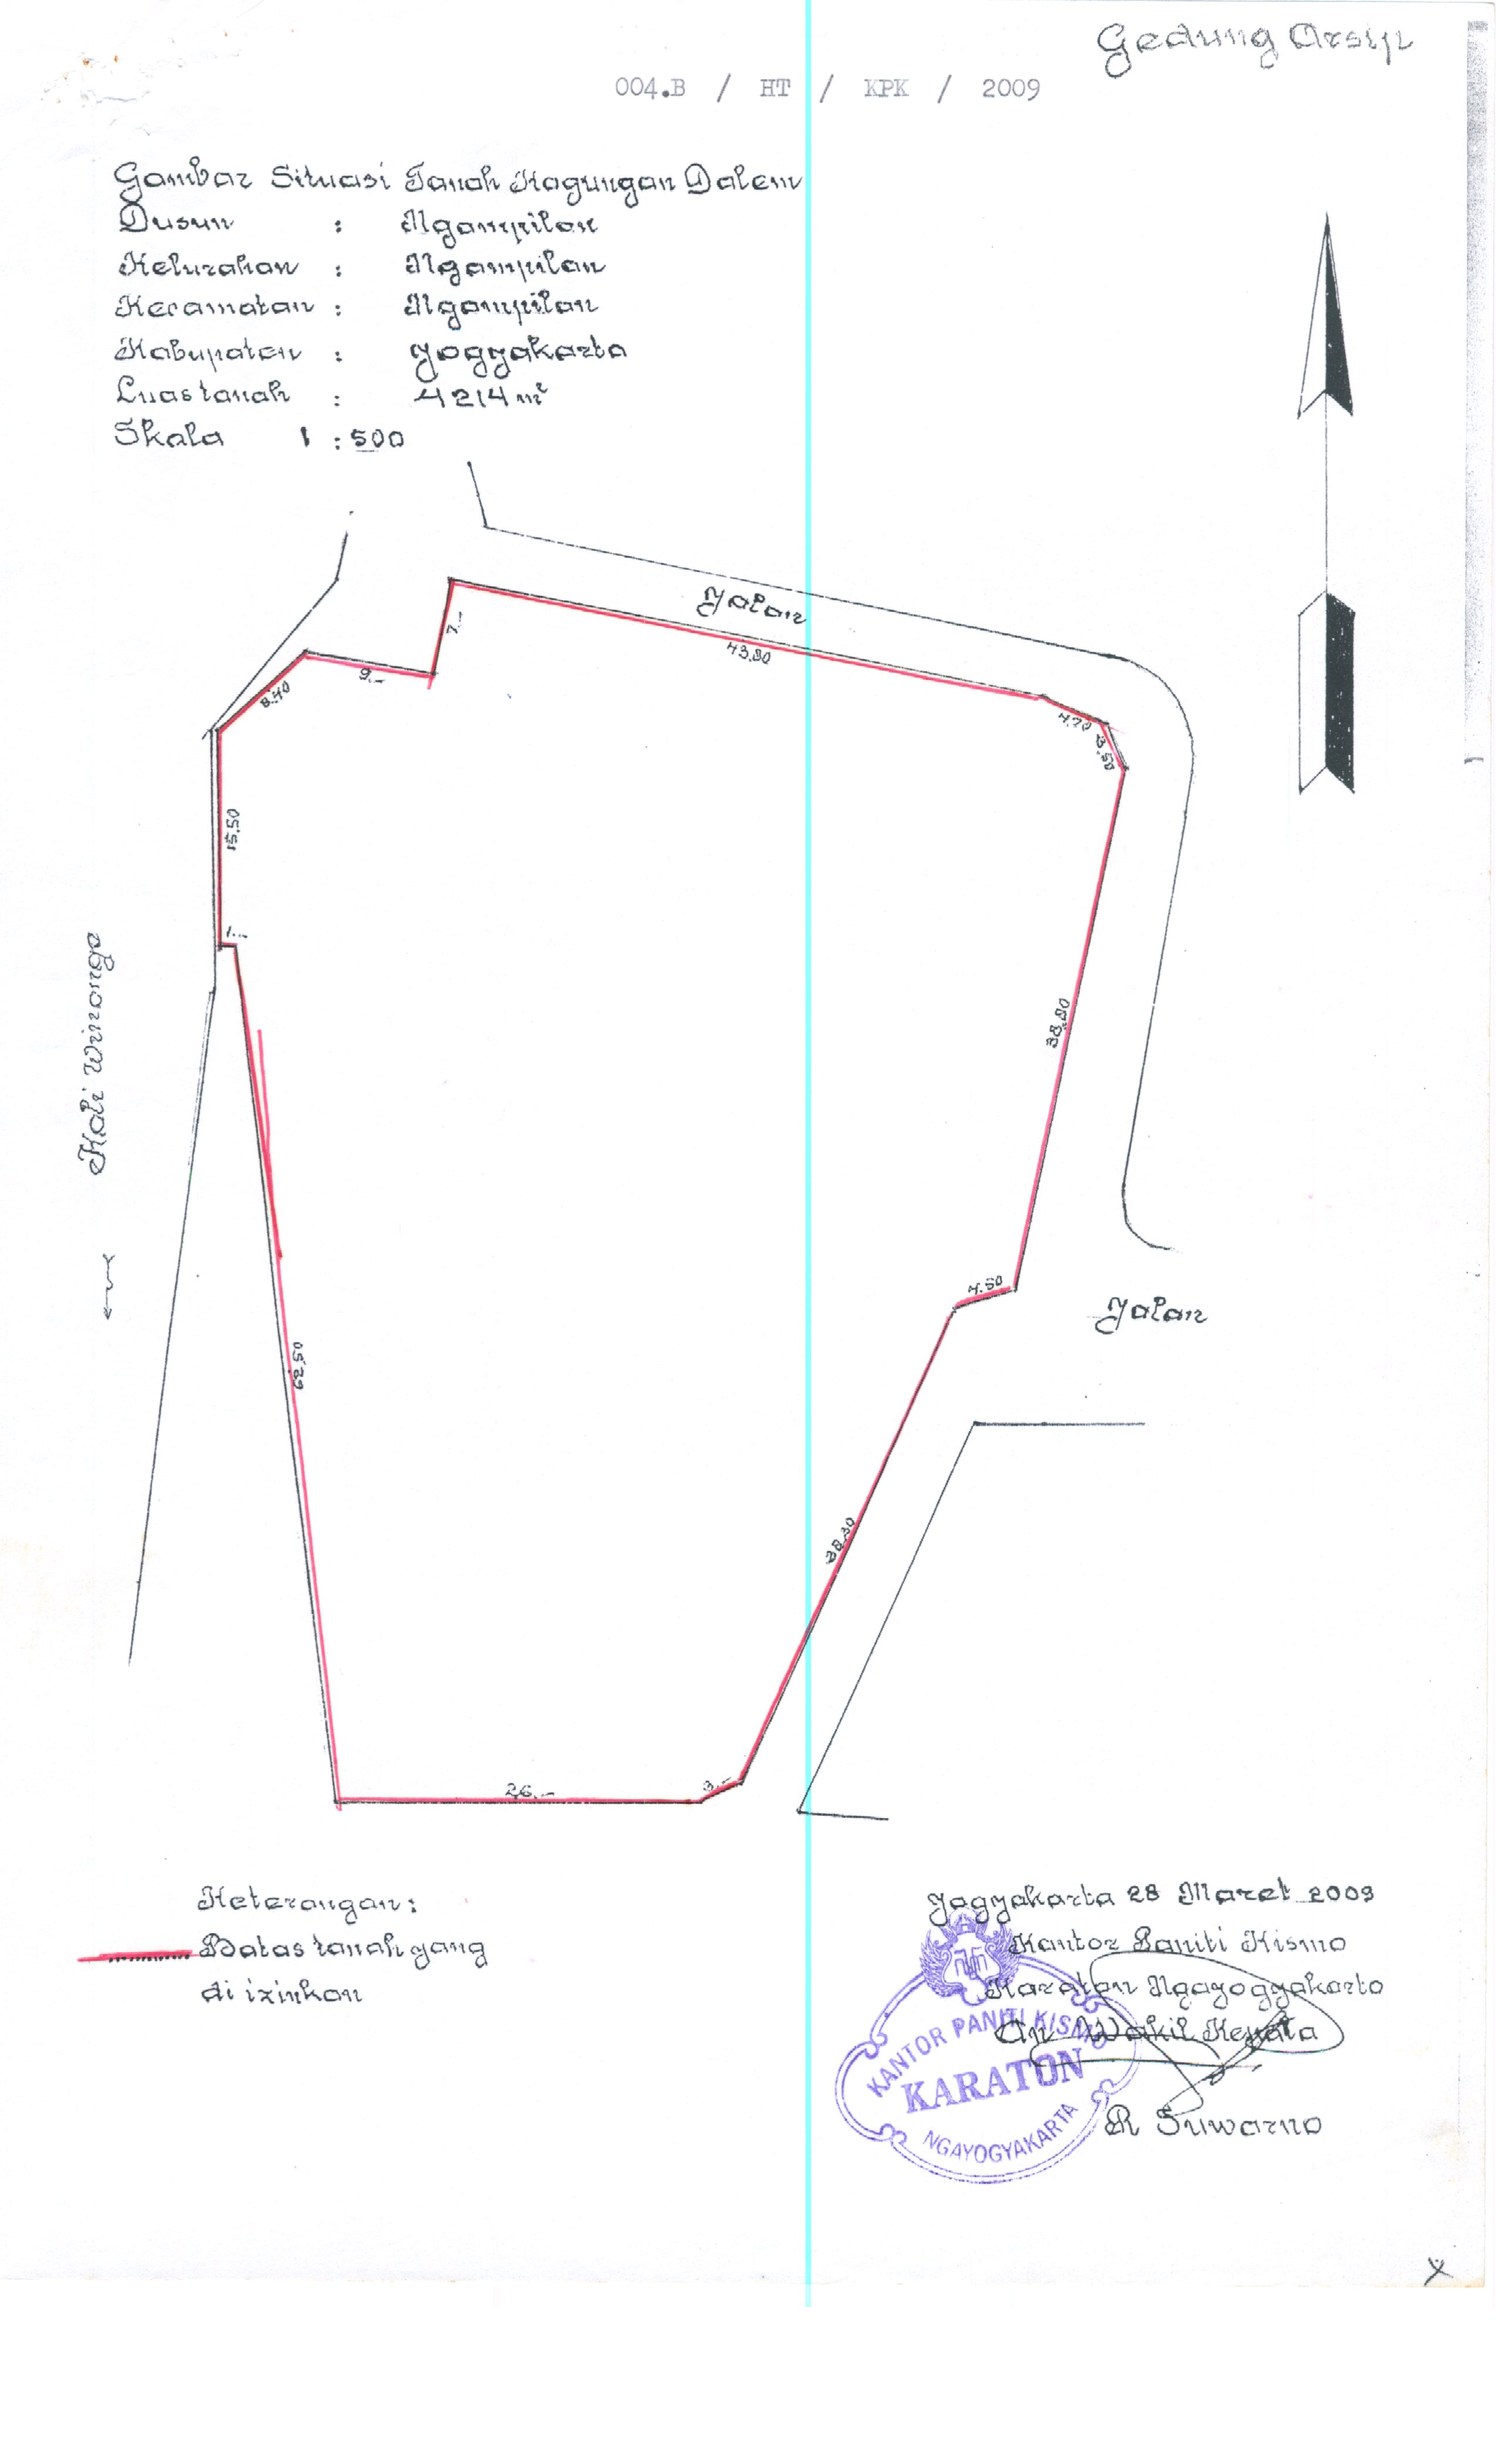 Gedung Arsip
004.B / HT / KPK / 2009
Gambar Situasi Tanah Kagungan Dalem
Dusun : Ngampilan
Kelurahan : Ngampilan
Kecamatan : Ngampilan
Kabupaten : Yogyakarta
Luas tanah : 4214 m²
Skala 1 : 500
Jalan
7.-
43,80
9.-
8.40
4.70
3.50
15.50
1.-
Kali Winongo
38,80
4.50
Jalan
62.50
38.30
3.-
26.-
Keterangan:
Batas tanah yang
di izinkan
Yogyakarta 28 Maret 2009
Kantor Paniti Kismo
Karaton Ngayogyakarta
An Wakil Kepala
KANTOR PANITI KISMO
KARATON
NGAYOGYAKARTA
R Suwarno